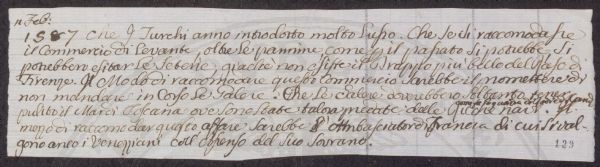 11 Feb:
1587 che i Turchi anno introdotto molto Lusso. Che se di raccomodasse
il Commercio di Levante, oltre le pannine, come p il passato si potrebbe, si
potrebbero esitar le Seterie, giacche non esiste il Drappo più bello del Raso di
Firenze. Il Modo di raccomodare questo Commercio sarebbe il promettere di
non mandare in Corso le Galere. Che le Galere dovrebbero soltanto tener
puliti il Mari di Toscana ove sono state talora predate delle
modo di raccomodar questo affare sarebbe l'Ambasciator di Francia di cui si val
gono anco i Veneziani coll dispenso del Suo Sovrano.
129